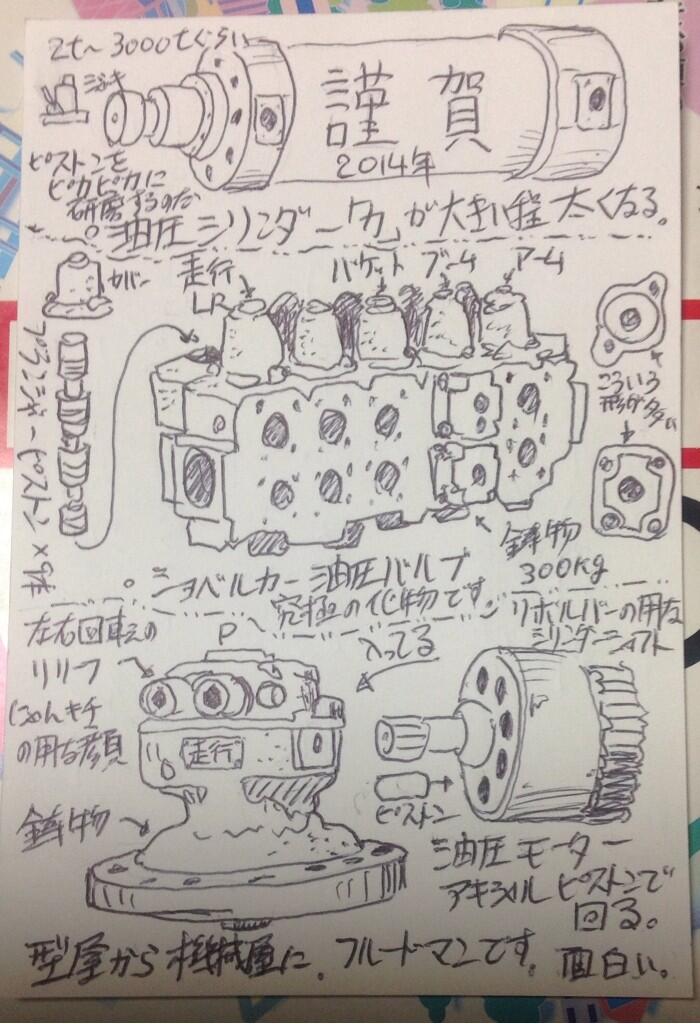 2t～3000tぐらい
ミヤキ
謹賀
2014年
ピストンを
ピカピカに
研磨するのだ
。油圧シリンダー「力」が大きい程太くなる。
カバー
走行
LR
バケット ブーム アーム
プランジャーピストン×9本
いろいろ
形が多い
鋳物
300kg
。ショベルカー油圧バルブ
究極の化物です。
左右回転の
リリフ
P
入ってる
リボルバーの用な
シリンダーシャフト
の用な顔
走行
鋳物
ピストン
油圧モーター
アキシャルピストンで
回る。
型屋から機械屋に。フルードマンです。面白い。